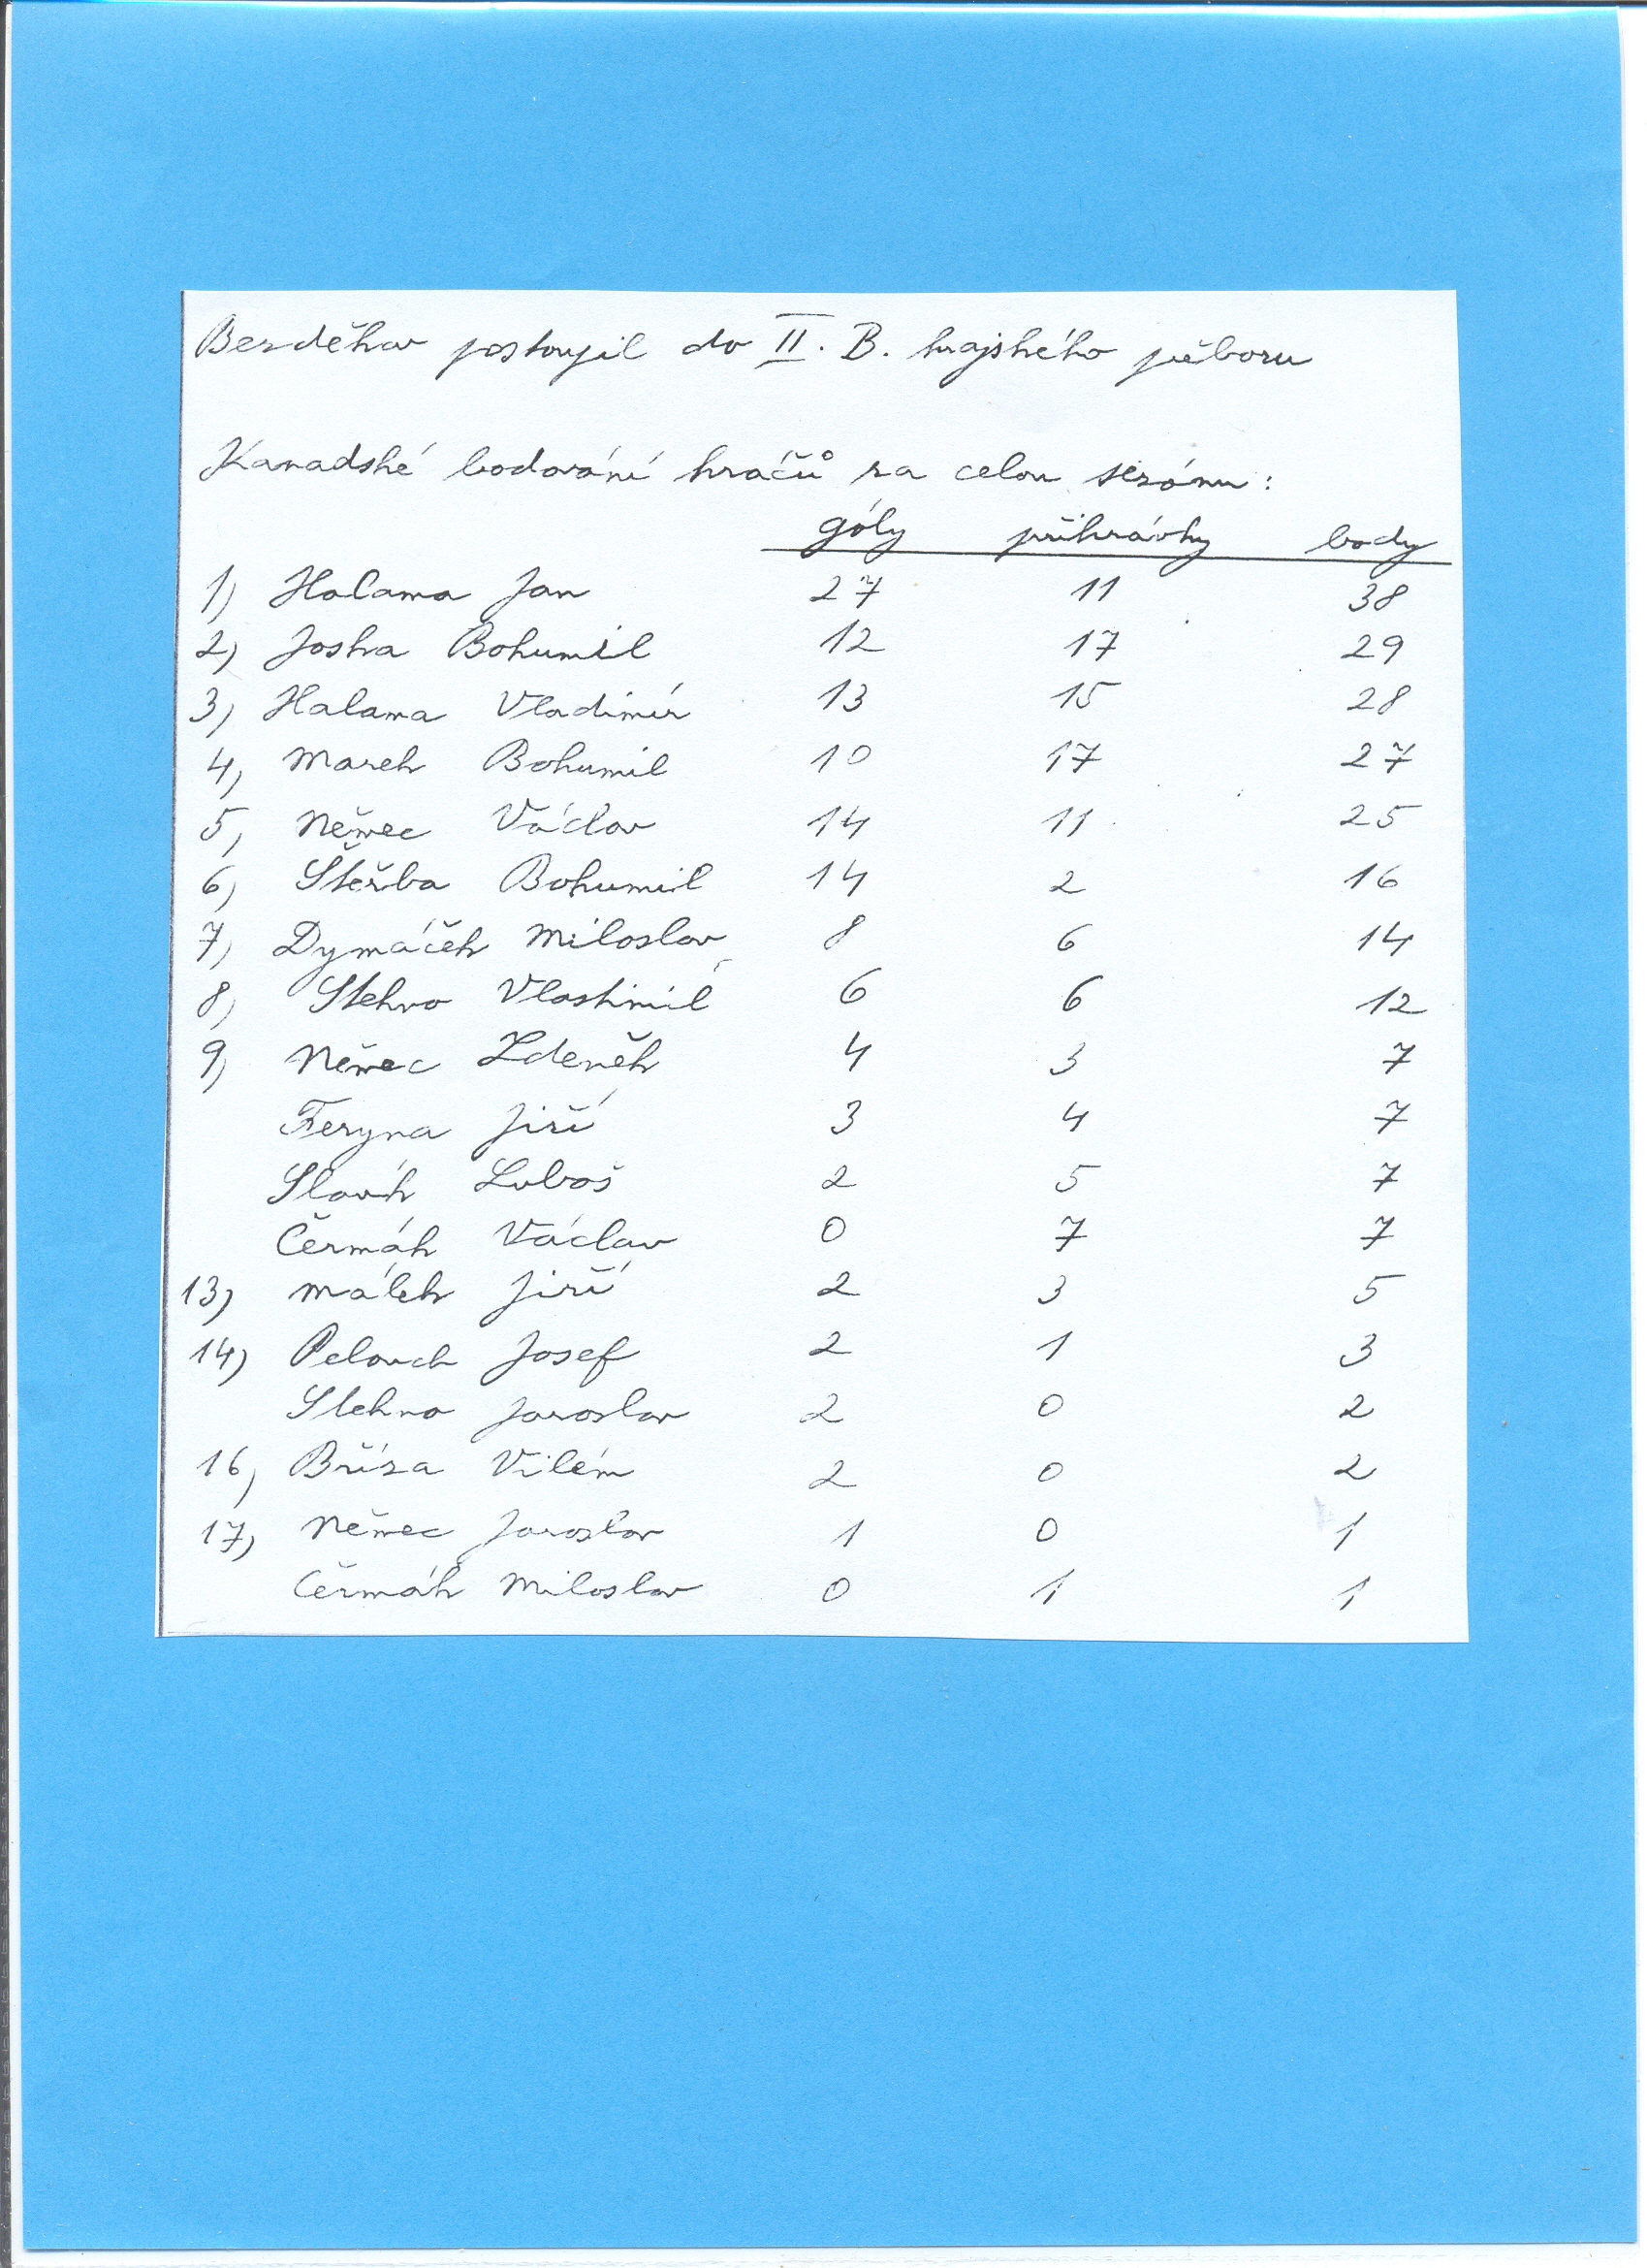 Bezděkov postoupil do II. B. krajského přeboru
Kanadské bodování hráčů za celou sezónu:
góly přihrávky body
1) Halama Jan 27 11 38
2) Joska Bohumil 12 17 29
3) Halama Vladimír 13 15 28
4) Marek Bohumil 10 17 27
5) Němec Václav 14 11 25
6) Štěrba Bohumil 14 2 16
7) Dymáček Miloslav 8 6 14
8) Stehno Vlastimil 6 6 12
9) Němec Zdeněk 4 3 7
Feryna Jiří 3 4 7
Slavík Luboš 2 5 7
Čermák Václav 0 7 7
13) Málek Jiří 2 3 5
14) Pelouch Josef 2 1 3
Stehno Jaroslav 2 0 2
16) Bříza Vilém 2 0 2
17) Němec Jaroslav 1 0 1
Čermák Miloslav 0 1 1